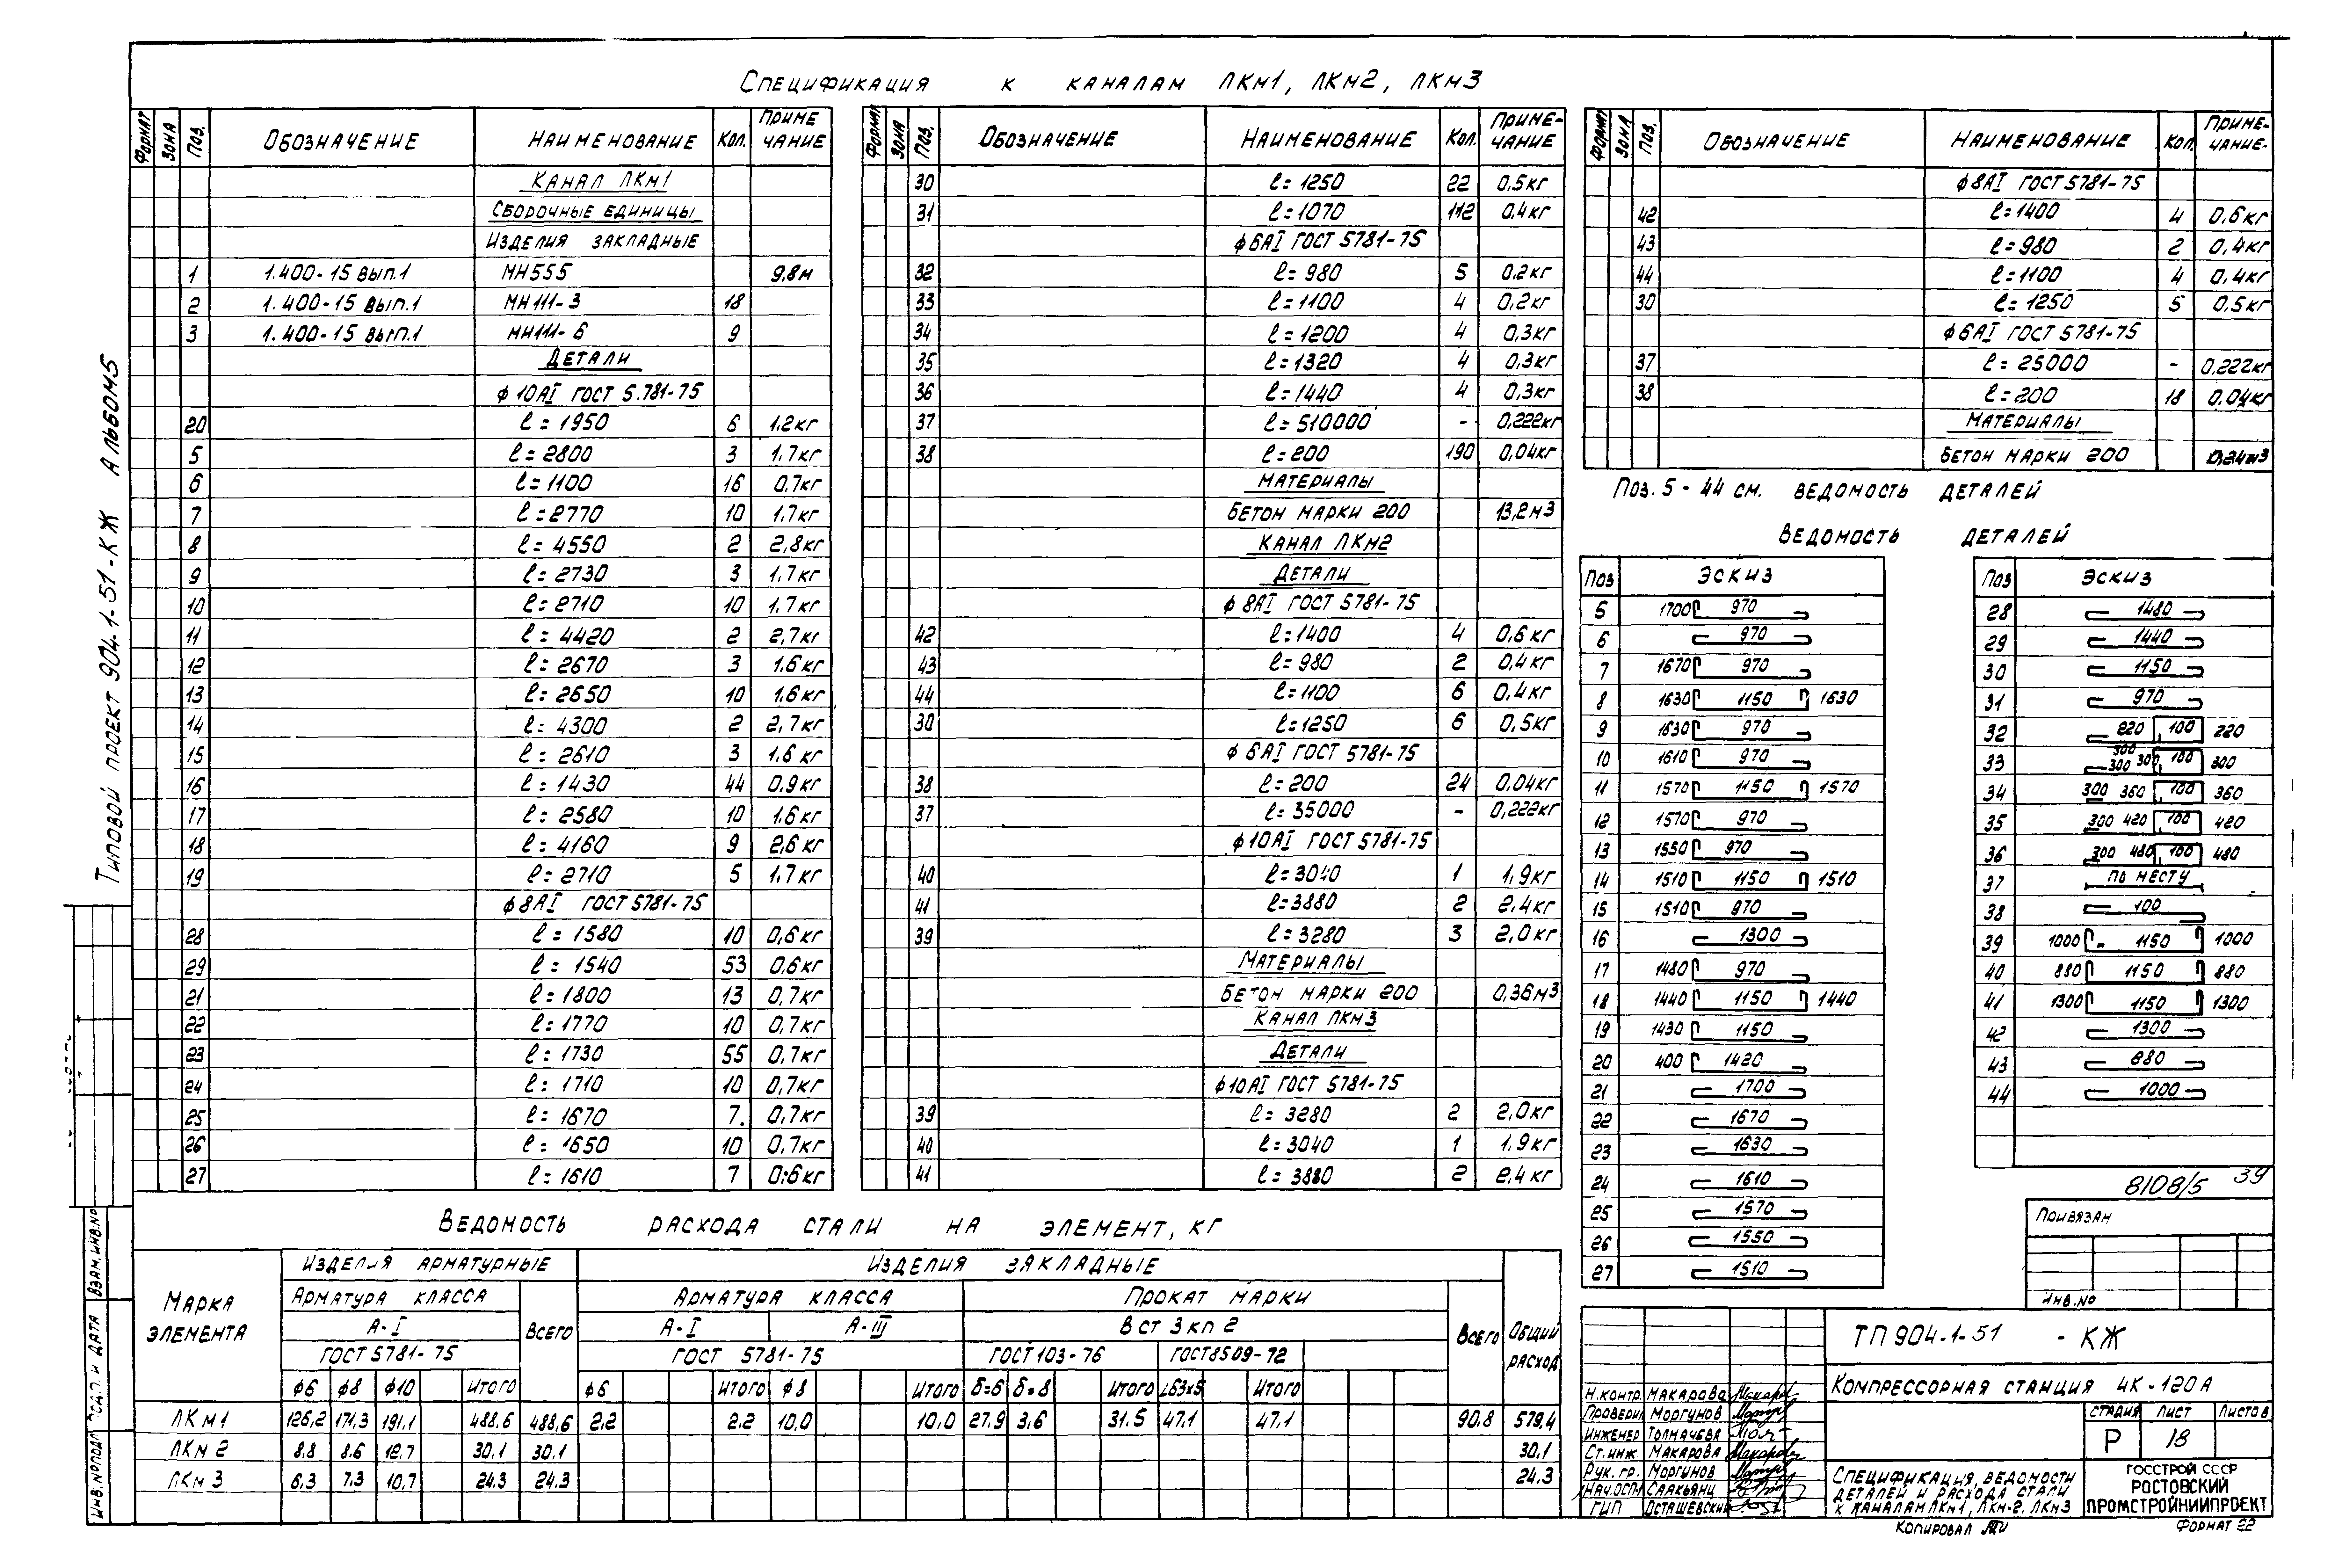 Спецификация к каналам ЛКм1, ЛКм2, ЛКм3
Формат Зона Поз. Обозначение Наименование Кол. Приме чание
Канал ЛКм1
Сборочные единицы
Изделия закладные
1 1.400-15 вып.1 МН555 9,8м
2 1.400-15 вып.1 МН111-3 18
3 1.400-15 вып.1 МН111-6 9
Детали
ф10АI ГОСТ 5.781-75
20 ℓ=1950 6 1,2кг
5 ℓ=2800 3 1,7кг
6 ℓ=1100 16 0,7кг
7 ℓ=2770 10 1,7кг
8 ℓ=4550 2 2,8кг
9 ℓ=2730 3 1,7кг
10 ℓ=2710 10 1,7кг
11 ℓ=4420 2 2,7кг
12 ℓ=2670 3 1,6кг
13 ℓ=2650 10 1,6кг
14 ℓ=4300 2 2,7кг
15 ℓ=2610 3 1,6кг
16 ℓ=1430 44 0,9кг
17 ℓ=2580 10 1,6кг
18 ℓ=4160 9 2,6кг
19 ℓ=2710 5 1,7кг
ф8АI ГОСТ 5781-75
28 ℓ=1580 10 0,6кг
29 ℓ=1540 53 0,6кг
21 ℓ=1800 13 0,7кг
22 ℓ=1770 10 0,7кг
23 ℓ=1730 55 0,7кг
24 ℓ=1710 10 0,7кг
25 ℓ=1670 7. 0,7кг
26 ℓ=1650 10 0,7кг
27 ℓ=1610 7 0,6кг
Формат Зона Поз. Обозначение Наименование Кол. Приме- чание
30 ℓ=1250 22 0,5кг
31 ℓ=1070 112 0,4кг
ф6АI ГОСТ 5781-75
32 ℓ=980 5 0,2кг
33 ℓ=1100 4 0,2кг
34 ℓ=1200 4 0,3кг
35 ℓ=1320 4 0,3кг
36 ℓ=1440 4 0,3кг
37 ℓ=510000 - 0,222кг
38 ℓ=200 190 0,04кг
Материалы
Бетон марки 200 13,2м3
Канал ЛКм2
Детали
ф8АI ГОСТ 5781-75
42 ℓ=1400 4 0,6кг
43 ℓ=980 2 0,4кг
44 ℓ=1100 6 0,4кг
30 ℓ=1250 6 0,5кг
ф6АI ГОСТ 5781-75
38 ℓ=200 24 0,04кг
37 ℓ=35000 - 0,222кг
ф10АI ГОСТ 5781-75
40 ℓ=3040 1 1,9кг
41 ℓ=3880 2 2,4кг
39 ℓ=3280 3 2,0кг
Материалы
Бетон марки 200 0,36м3
Канал ЛКм3
Детали
ф10АI ГОСТ 5781-75
39 ℓ=3280 2 2,0кг
40 ℓ=3040 1 1,9кг
41 ℓ=3880 2 2,4кг
Формат Зона Поз. Обозначение Наименование Кол. Приме- чание.
ф8АI ГОСТ 5781-75
42 ℓ=1400 4 0,6кг
43 ℓ=980 2 0,4кг
44 ℓ=1100 4 0,4кг
30 ℓ=1250 5 0,5кг
ф6АI ГОСТ 5781-75
37 ℓ=25000 - 0,222кг
38 ℓ=200 18 0.04кг
Материалы
Бетон марки 200 0,24м3
Поз. 5-44 см. ведомость деталей
Ведомость деталей
Поз Эскиз
5 1700 970
6 970
7 1670 970
8 1630 1150 1630
9 1630 970
10 1610 970
11 1570 1150 1570
12 1570 970
13 1550 970
14 1510 1150 1510
15 1510 970
16 1300
17 1480 970
18 1440 1150 1440
19 1430 1150
20 400 1420
21 1700
22 1670
23 1630
24 1610
25 1570
26 1550
27 1510
Поз Эскиз
28 1480
29 1440
30 1150
31 970
32 220 100 220
33 300 300 100 300
34 300 360 100 360
35 300 420 100 420
36 300 480 100 480
37 по месту
38 100
39 1000 1150 1000
40 880 1150 880
41 1300 1150 1300
42 1300
43 880
44 1000
8108/5 39
Привязан
Инв.No
Ведомость расхода стали на элемент, кг
Марка элемента
Изделия арматурные
Изделия закладные
Арматура класса
Всего
Арматура класса
Прокат марки
Всего
Общий расход
А-I
А-I А-III
В ст 3 кп 2
ГОСТ 5781-75
ГОСТ 5781-75
ГОСТ 103-76 ГОСТ 8509-72
ф6 ф8 ф10 Итого ф6 Итого ф8 Итого δ=6 δ=8 Итого L63x5 Итого
ЛКм1 126,2 171,3 191,1 488.6 488,6 2.2 2.2 10,0 10,0 27,9 3,6 31.5 47.1 47.1 90.8 579,4
ЛКм2 8,8 8.6 12,7 30,1 30.1 30.1
ЛКм3 6.3 7.3 10,7 24.3 24.3 24.3
Н.контр. Макарова
Проверил Моргунов
Инженер Толмачева
Ст.инж Макарова
Рук. гр. Моргунов
Нач.ОСП-1 Саакьянц
ГИП Осташевский
ТП 904-1-51 - КЖ
Компрессорная станция 4К-120А
Стадия Лист Листов
Р 18
Спецификация, ведомости
деталей и расхода стали
к каналам ЛКм1, ЛКм-2, ЛКм3
Госстрой СССР
Ростовский
Промстройниипроект
Копировал
Формат 22
Типовой проект 904-1-51-КЖ Альбом 5
Взам.инв.No
Подп. и дата
Инв.No подл